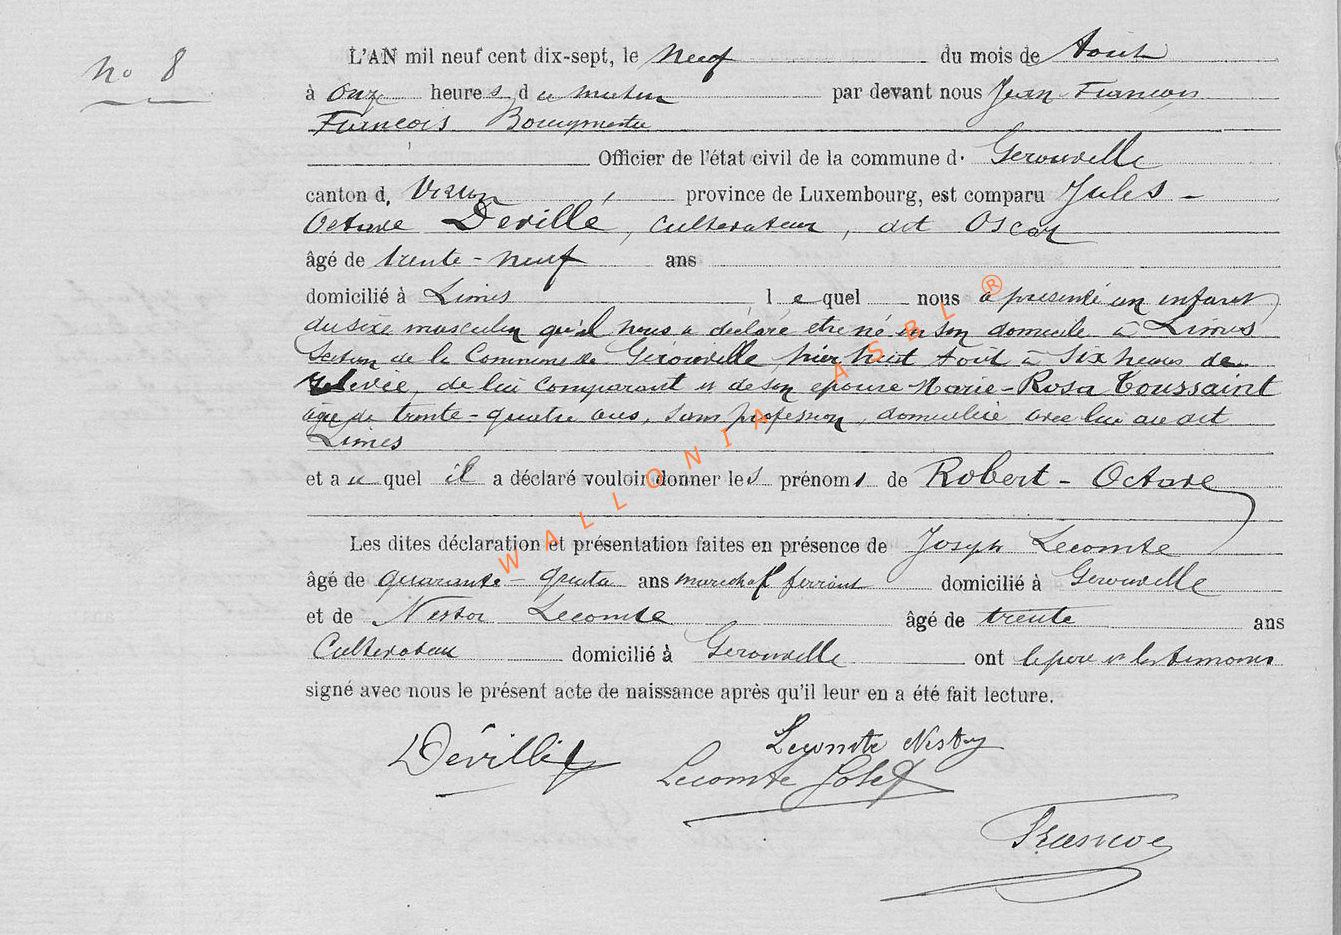 No 8
L'AN mil neuf cent dix-sept, le neuf du mois de Août
à onze heures du matin par devant nous Jean François
François
Officier de l'état civil de la commune d. Gerouville
canton d, Virton province de Luxembourg, est comparu Jules-
Octave Devillé, cultivateur, dit Oscar
âgé de trente-neuf ans
domicilié à Limes lequel nous a présenté un enfant
du sexe masculin qu'il nous a déclaré être né en son domicile à Limes
Section de la Commune de Gérouville, hier huit Août à six heures de
relevée, de lui comparant et de son épouse Marie-Rosa Toussaint
âgée de trente-quatre ans, sans profession, domiciliée avec lui au dit
Limes
et auquel il a déclaré vouloir donner les prénoms de Robert-Octave
Les dites déclaration et présentation faites en présence de Joseph Lecomte
âgé de quarante- ans maréchal ferrant domicilié à Gerouville
et de Nestor Lecomte âgé de trente ans
Cultivateur domicilié à Gerouville ont le père et les témoins
signé avec nous le présent acte de naissance après qu'il leur en a été fait lecture.
Lecomte Nestor
Lecomte
WALLONIA ASBL ®